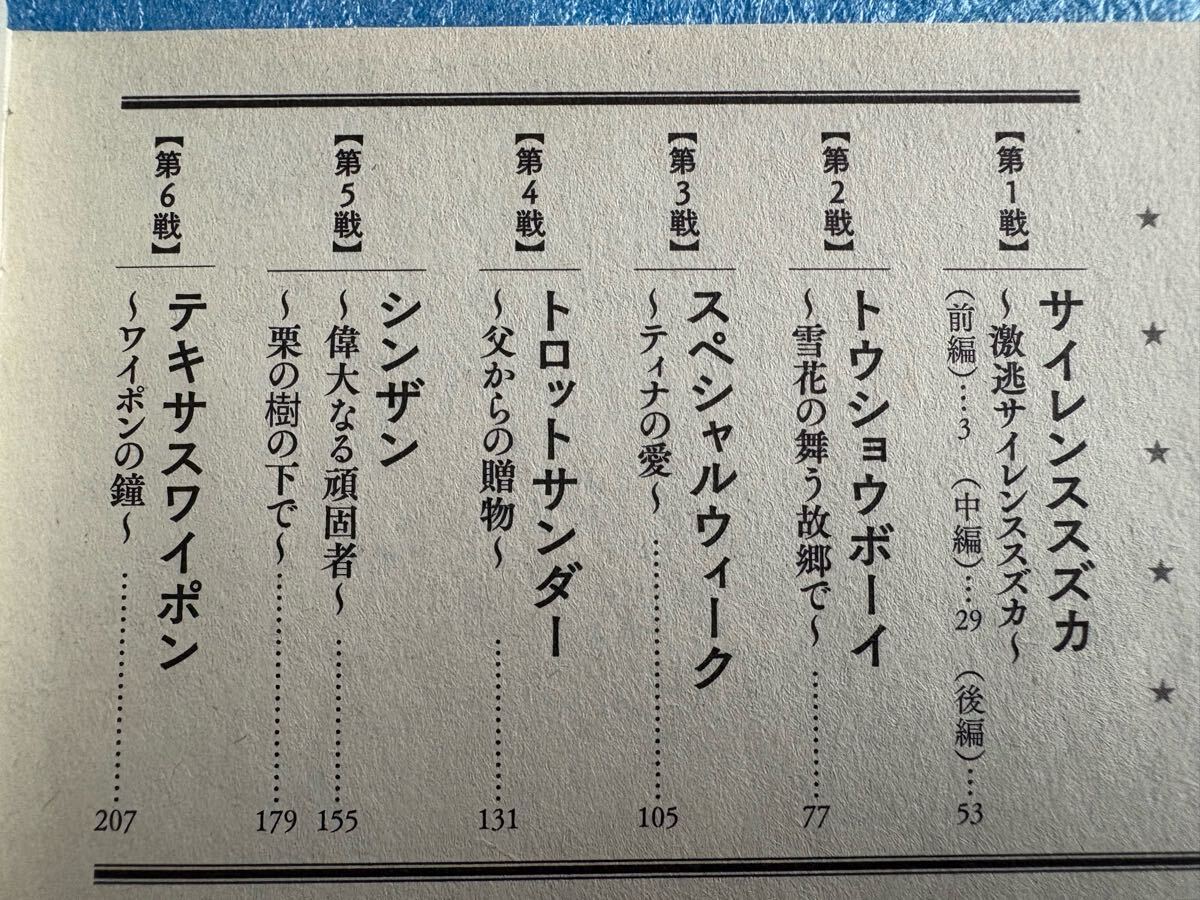 【第1戦】
サイレンススズカ
〜激逃サイレンススズカ〜
(前編)…3 (中編)…29 (後編)…53
【第2戦】
トウショウボーイ
〜雪花の舞う故郷で〜………77
【第3戦】
スペシャルウィーク
〜ティナの愛〜………………105
【第4戦】
トロットサンダー
〜父からの贈物〜…………131
【第5戦】
シンザン
〜偉大なる頑固者〜…………155
〜栗の樹の下で〜……………179
【第6戦】
テキサスワイポン
〜ワイポンの鐘〜……………207